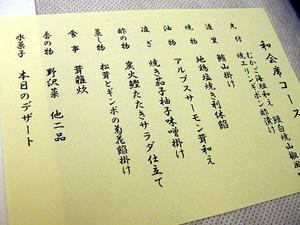 和会席コース
先付
むかご海胆和え　鰻白焼山椒
焼エリンギポン酢漬け
造里　鯛山掛け
焼物　地鶏塩焼き利休餡
油物　アルプスサーモン茸和え
凌ぎ　焼き茄子柚子味噌掛け
酢の物　炭火鰹たたきサラダ仕立て
蒸し物　松茸とギンポの菊花餡掛け
食事　茸雑炊
香の物　野沢菜　他二品
水菓子　本日のデザート